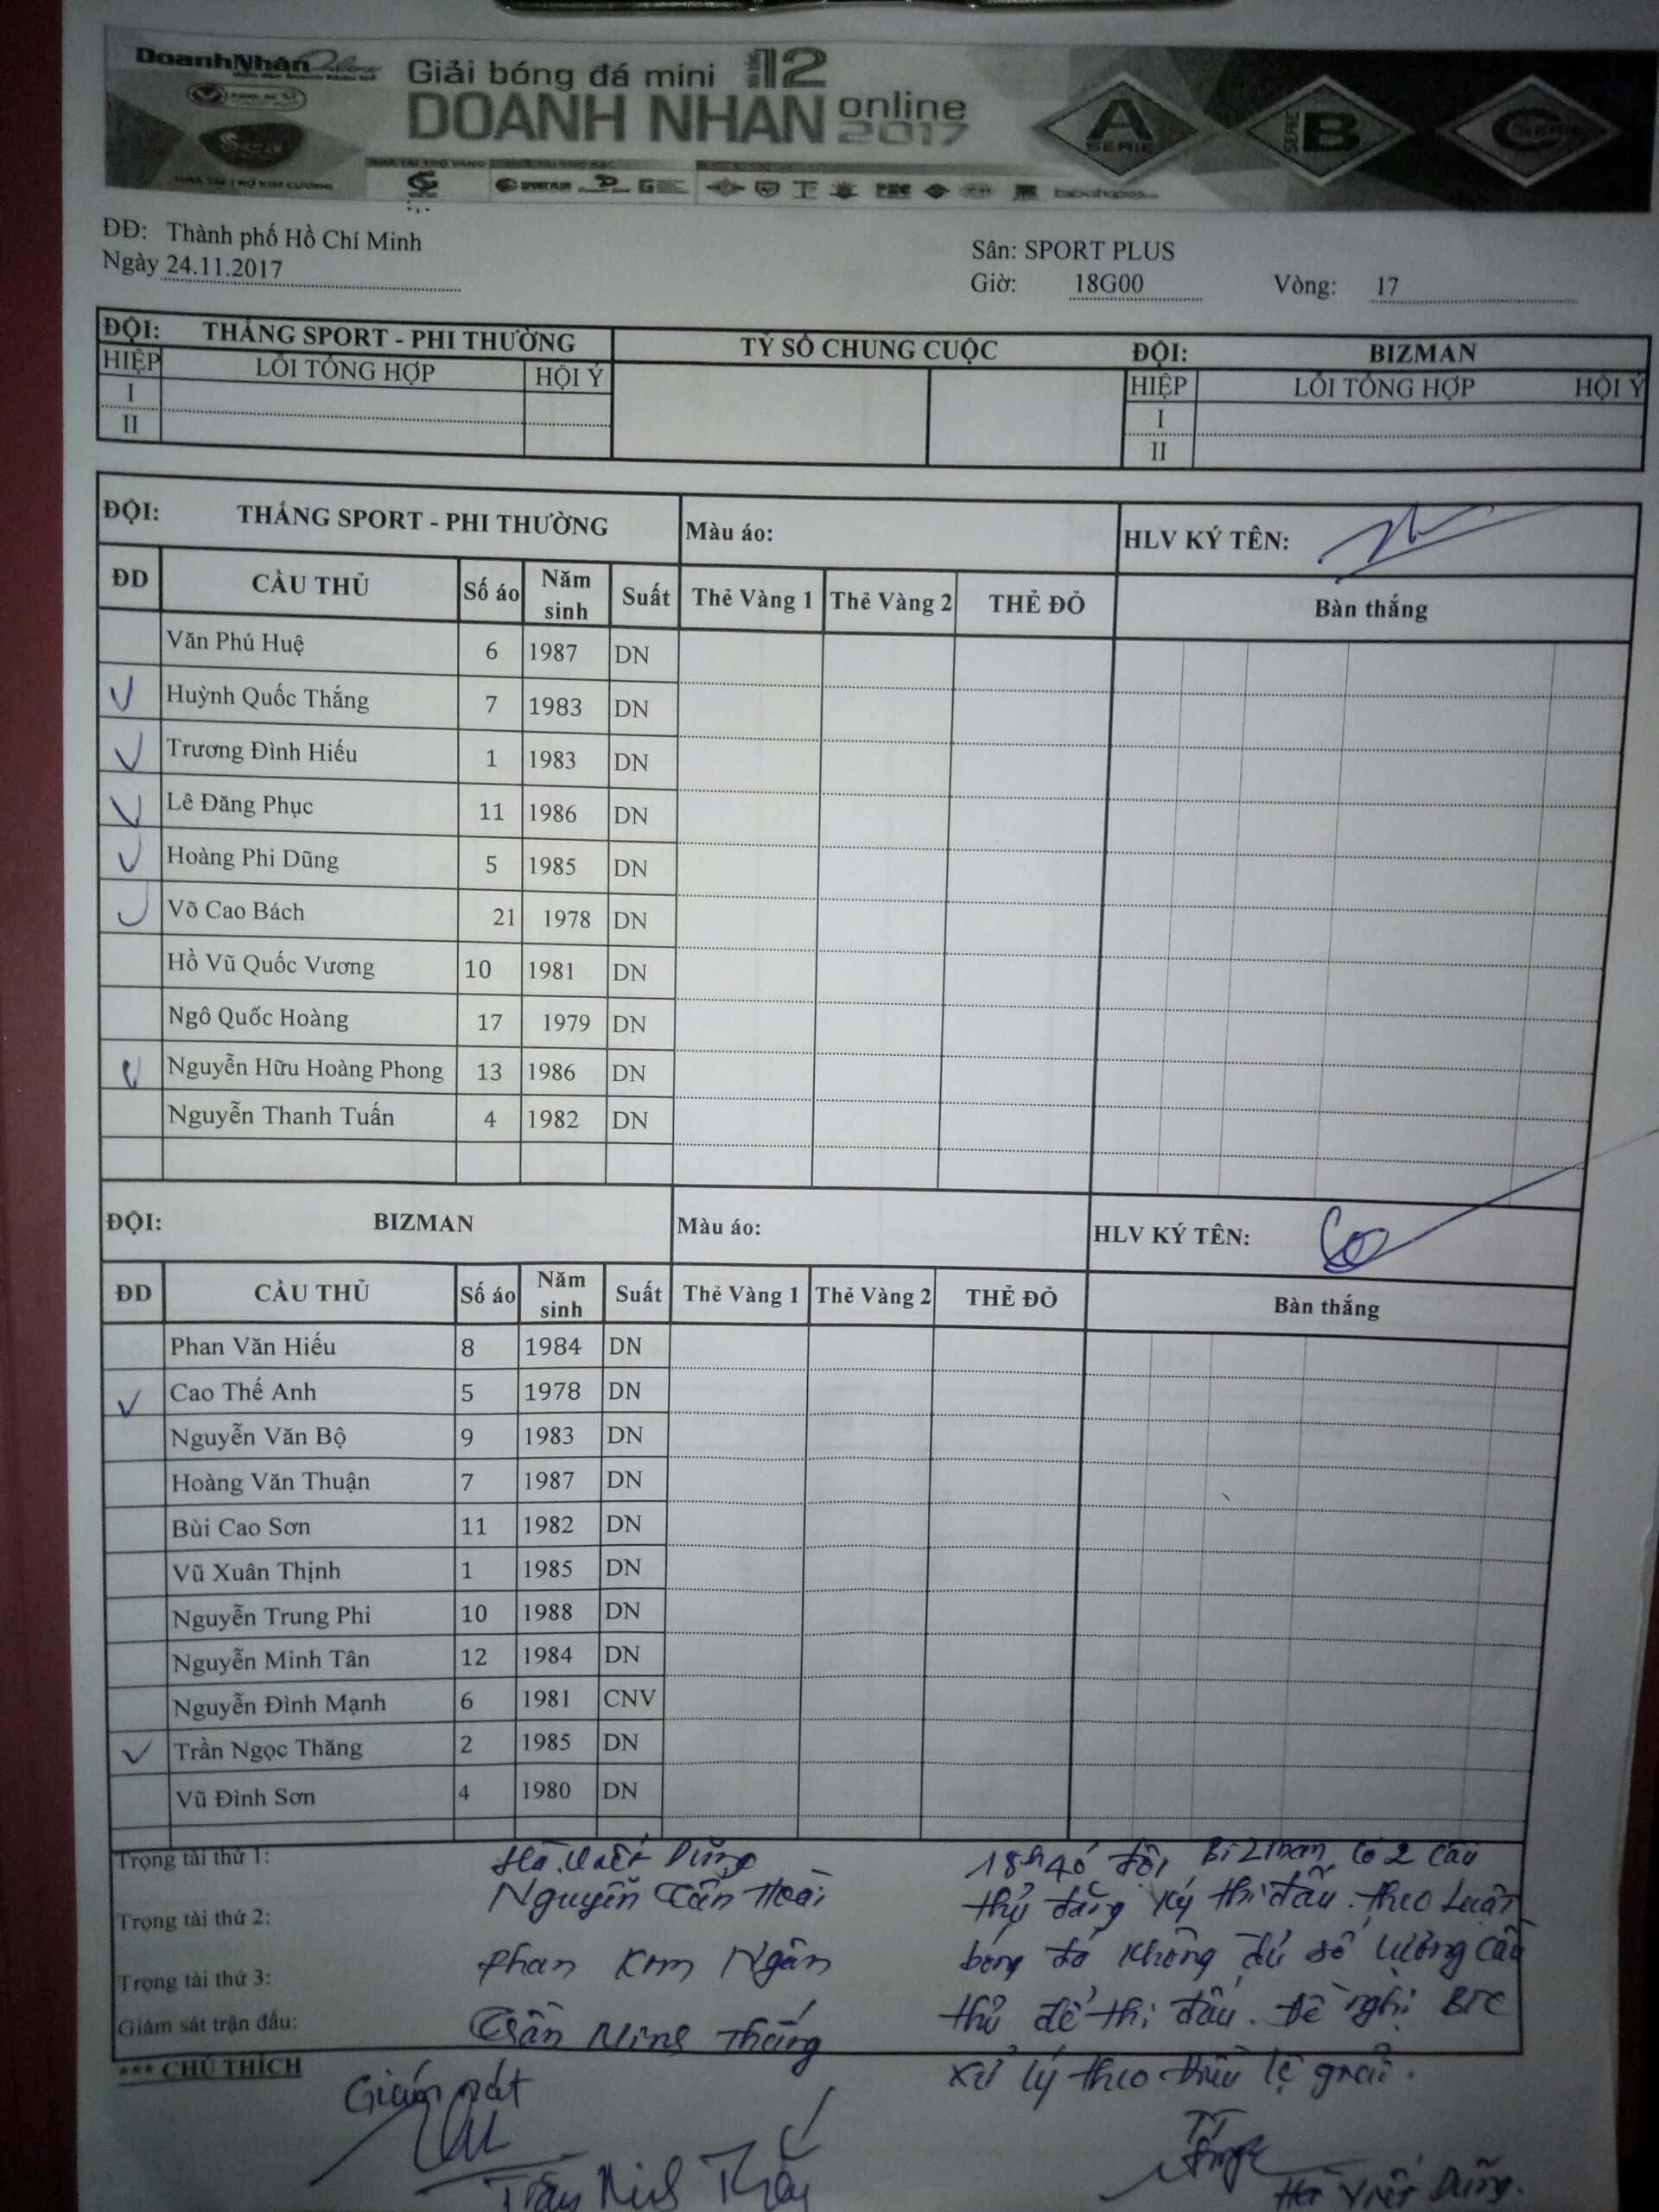 DoanhNhân Online
Giải bóng đá mini lần 12
DOANH NHÂN online
2017
A
SERIE
SERIE
B
C
SERIE
NHÀ TÀI TRỢ KIM CƯƠNG
NHÀ TÀI TRỢ VÀNG
SPORT PLUS
ĐĐ: Thành phố Hồ Chí Minh
Sân: SPORT PLUS
Ngày 24.11.2017
Giờ: 18G00 Vòng: 17
ĐỘI: THẮNG SPORT - PHI THƯỜNG TỶ SỐ CHUNG CUỘC ĐỘI: BIZMAN
HIỆP LỖI TỔNG HỢP HỘI Ý HIỆP LỖI TỔNG HỢP HỘI Ý
I I
II II
ĐỘI: THẮNG SPORT - PHI THƯỜNG Màu áo: HLV KÝ TÊN:
ĐD CẦU THỦ Số áo Năm sinh Suất Thẻ Vàng 1 Thẻ Vàng 2 THẺ ĐỎ Bàn thắng
Văn Phú Huệ 6 1987 DN
Huỳnh Quốc Thắng 7 1983 DN
Trương Đình Hiếu 1 1983 DN
Lê Đăng Phục 11 1986 DN
Hoàng Phi Dũng 5 1985 DN
Võ Cao Bách 21 1978 DN
Hồ Vũ Quốc Vương 10 1981 DN
Ngô Quốc Hoàng 17 1979 DN
Nguyễn Hữu Hoàng Phong 13 1986 DN
Nguyễn Thanh Tuấn 4 1982 DN
ĐỘI: BIZMAN Màu áo: HLV KÝ TÊN:
ĐD CẦU THỦ Số áo Năm sinh Suất Thẻ Vàng 1 Thẻ Vàng 2 THẺ ĐỎ Bàn thắng
Phan Văn Hiếu 8 1984 DN
Cao Thế Anh 5 1978 DN
Nguyễn Văn Bộ 9 1983 DN
Hoàng Văn Thuận 7 1987 DN
Bùi Cao Sơn 11 1982 DN
Vũ Xuân Thịnh 1 1985 DN
Nguyễn Trung Phi 10 1988 DN
Nguyễn Minh Tân 12 1984 DN
Nguyễn Đình Mạnh 6 1981 CNV
Trần Ngọc Thăng 2 1985 DN
Vũ Đình Sơn 4 1980 DN
Trọng tài thứ 1: Hà Viết Dũng 18h40 đội Bizman có 2 cầu
Trọng tài thứ 2: Nguyễn Tấn Hoài thủ đăng ký thi đấu. theo Luật
Trọng tài thứ 3: Phan Kim Ngân bóng đá không đủ số lượng cầu
Giám sát trận đấu: Trần Minh Thắng thủ để thi đấu. Đề nghị BTC
*** CHÚ THÍCH xử lý theo điều lệ giải.
Giám sát TT
Trần Minh Thắng Hà Viết Dũng.